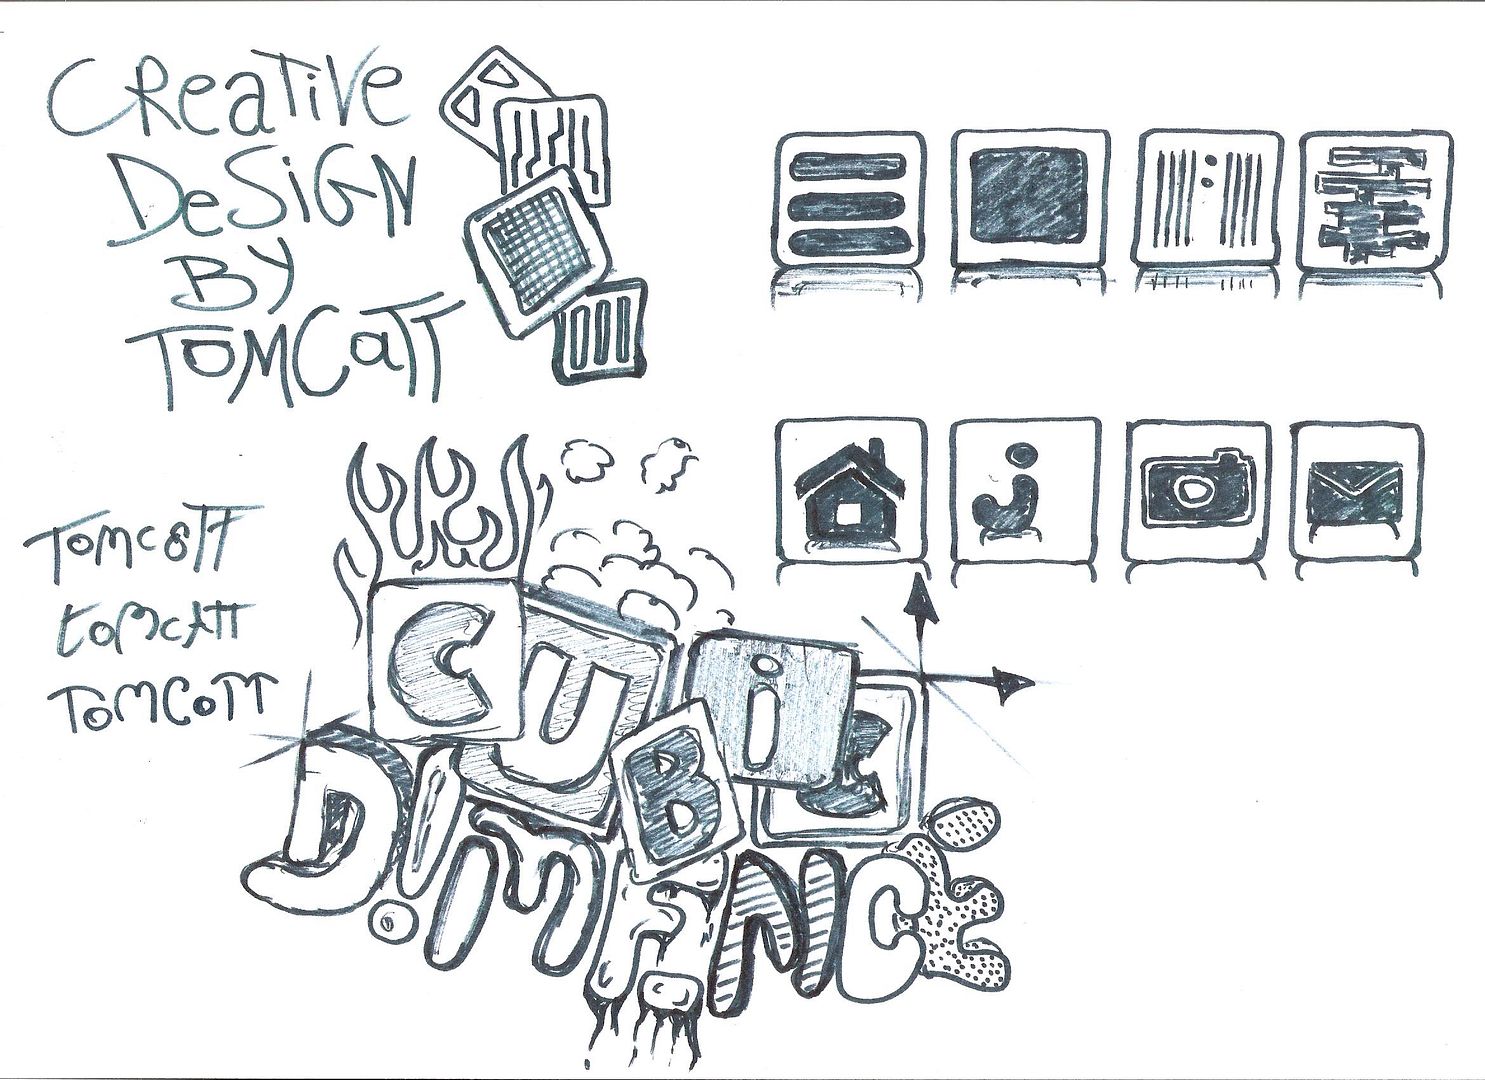 CReaTiVe
DeSiGN
BY
TOMCaTT
TOMCaTT
tOMCATT
TOMCoTT
CUBiE
DiMENCE